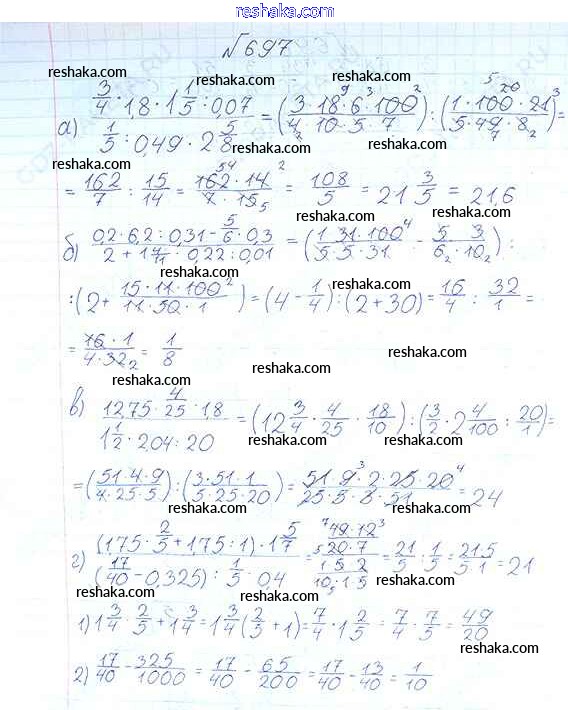 reshaka.com
№697
reshaka.com reshaka.com
а) (3/4 · 1,8 · 1 1/5 : 0,07) / (1/5 : 0,49 · 2 5/8) = (3·18·6·100 / 4·10·5·7) : (1·100·21 / 5·49·8) =
reshaka.com reshaka.com
= 162/7 : 15/14 = 162·14 / 7·15 = 108/5 = 21 3/5 = 21,6
reshaka.com reshaka.com
б) (0,2·6,2 : 0,31 − 5/6 · 0,3) / (2 + 1 4/11 · 0,22 : 0,01) = (1·31·100 / 5·5·31 − 5·3 / 6·10) :
reshaka.com reshaka.com
: (2 + 15·11·100 / 11·50·1) = (4 − 1/4) : (2 + 30) = 16/4 : 32/1 =
reshaka.com reshaka.com
= 16·1 / 4·32 = 1/8
reshaka.com reshaka.com
в) (12,75 · 4/25 · 1,8) / (1 1/2 · 2,04 : 20) = (12 3/4 · 4/25 · 18/10) : (3/2 · 2 4/100 : 20/1) =
reshaka.com reshaka.com
= (51·4·9 / 4·25·5) : (3·51·1 / 5·25·20) = 51·9·2·25·20 / 25·5·3·51 = 24
reshaka.com reshaka.com
г) (1,75 · 2/5 + 1,75 : 1) · 1 5/7 / (17/40 − 0,325) : 1/5 · 0,4 = 49·12 / 20·7 / 1·5·2 / 10·1·5 = 21/5 : 1/5 = 21·5 / 5·1 = 21
reshaka.com reshaka.com
1) 1 3/4 · 2/5 + 1 3/4 = 1 3/4 (2/5 + 1) = 7/4 · 1 2/5 = 7/4 · 7/5 = 49/20
reshaka.com reshaka.com
2) 17/40 − 325/1000 = 17/40 − 65/200 = 17/40 − 13/40 = 1/10
reshaka.com reshaka.com
reshaka.com